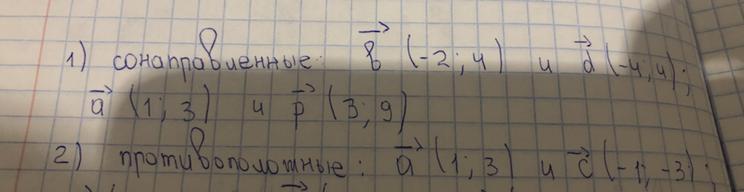 1) сонаправленные: b⃗ (-2; 4) и d⃗ (-4; 4);
a⃗ (1; 3) и p⃗ (3; 9)
2) противоположные: a⃗ (1; 3) и c⃗ (-1; -3);